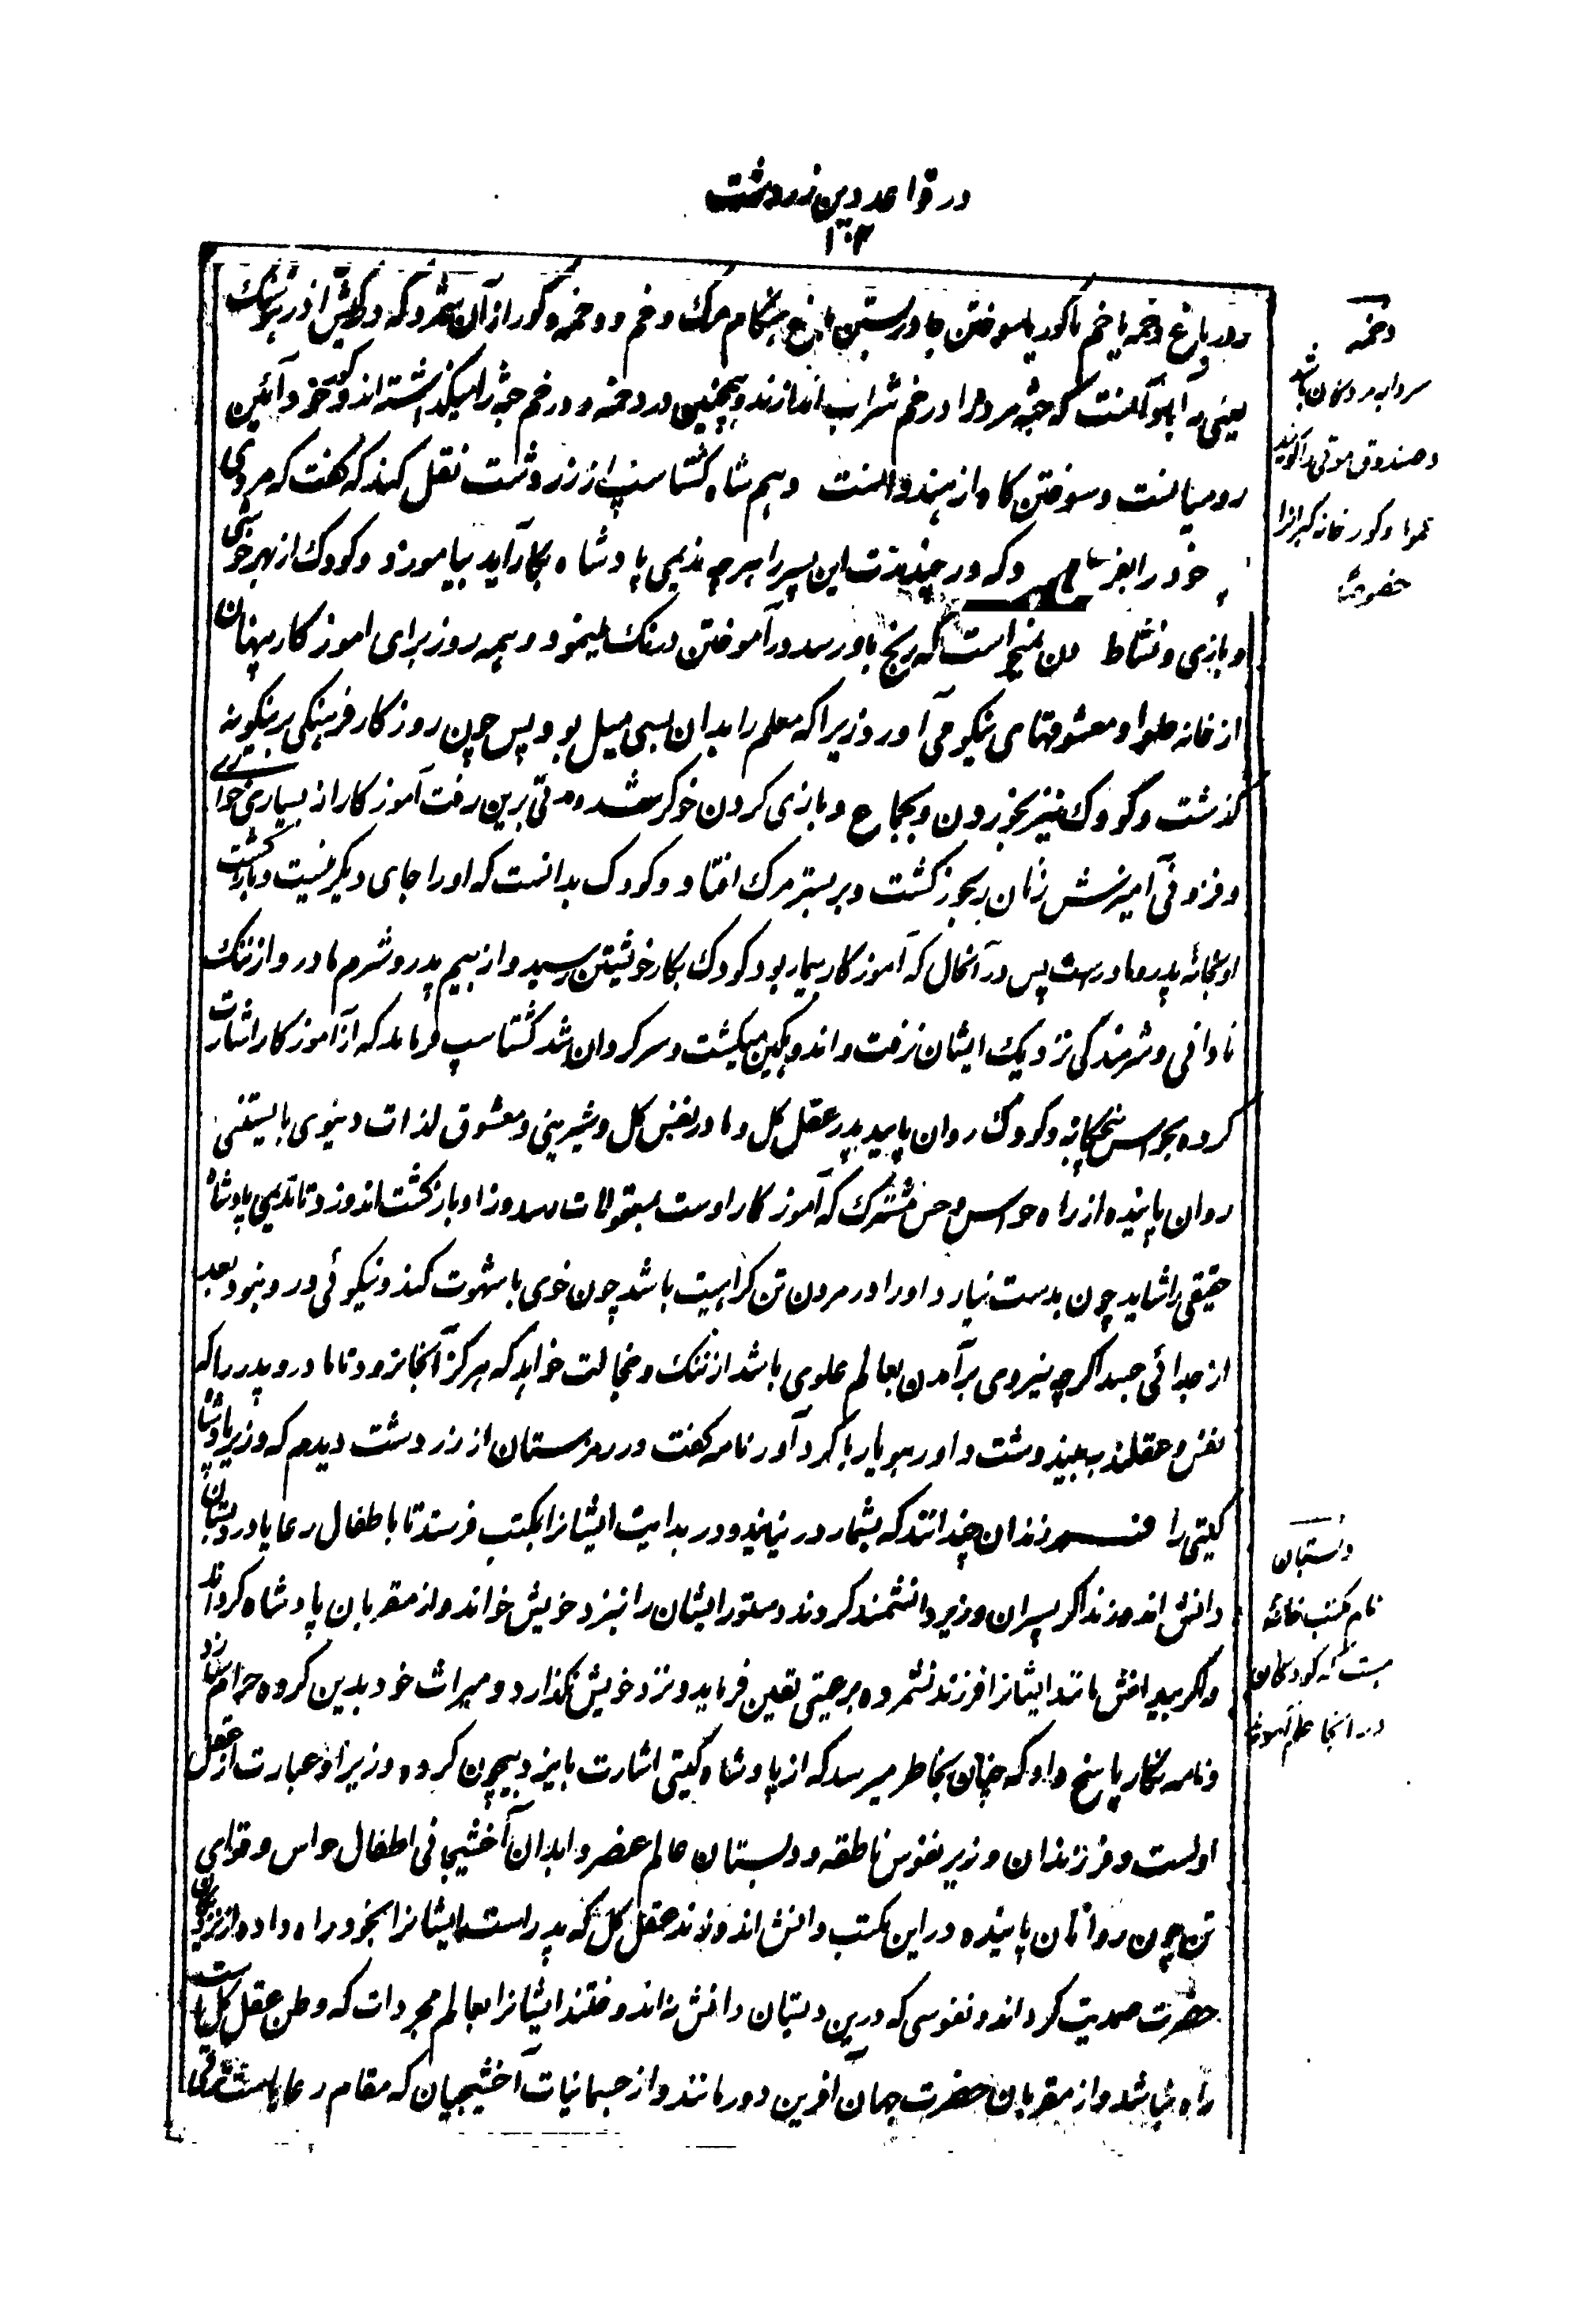 در قواعد دین زردشت
۱۰۳
ودر باغ دخمه یا خم یا گور یا سوختن جا درستن هنگام مرگ وخم ودخمه وگور از آن شمرد که در کیش آذر هوشنگ
یعنی مه آبادآنست که جثه مرده را در خم شراب اندازند وهمچنین در دخمه ودر خم جثه را میگذاشته اند وگور خود آئین
رومیانست وسوختن کاه از هندوانست وهم شاه گشتاسپ از زردشت نقل کند که گفت که مردی
خود را بفرهنگی داد که در چند مدت این پسر را هرچه ندیمی پادشاه بکار آید بیاموزد وکودک از بهر خوشی
وبازی ونشاط نمیخواست که رنج باو رسد در آموختن درنگ مینمود وهمه روز برای آموزگار پنهان
از خانه حلوا ومعشوقهای نیکو می آورد زیرا که معلم را بدان بسی میل بود پس چون روزگار فرهنگی برینگونه
گذشت وکودک نیز بخوردن وجماع وبازی کردن خوگر شد ومدتی برین رفت آموزگار از بسیاری خوا
وفزونی آمیزش زنان رنجور گشت وبر بستر مرگ افتاد وکودک بدانست که او را جای دیگر نیست وبازگشت
او بخانه پدر ومادرست پس در آنحال که آموزگار بیمار بود کودک بکار خویشتن رسید واز بیم پدر وشرم مادر واز ننگ
نادانی وشرمندگی نزدیک ایشان نرفت واندوهگین میگشت وسرگردان شد گشتاسپ فرماید که از آموزگار اشارت
کرده بحواس پنجگانه وکودک روان پاینده پدر عقل کل ومادر نفس کل وشیرینی ومعشوق لذات دنیوی بایستنی
روان پاینده از راه حواس وحس مشترک که آموزگار اوست بمعقولات رسد وزاد بازگشت اندوزد تا ندیمی پادشاه
حقیقی را شاید چون بدست نیارد او را در مردن تن کراهیت باشد چون خوی با شهوت کند ونیکوئی درو نبود بعد
از جدائی جسد اگرچه نیروی برآمدن بعالم علوی باشد از ننگ وخجالت خواهد که هرگز آنجا نرود تا مادر وپدر را که
نفس وعقلند ببیند وشت داور هوریار باگرد آور نامه گفت در رمزستان از زردشت دیدم که وزیر پادشاه
گیتی را فرزندان چندانند که بشمار در نیایند ودر بدایت ایشانرا بمکتب فرستد تا با اطفال رعایا در دبستان
دانش اندوزند اگر پسران وزیر دانشمند گردند دستور ایشان را نیزد خویش خواند واز مقربان پادشاه گرداند
واگر بیدانش مانند ایشانرا فرزند نشمرده برعیتی تعین فرماید ونزد خویش نگذارد ومیراث خود بدین گروه حرام سازد
ونامه نگار پاسخ داد که چنان بخاطر میرسد که از پادشاه گیتی اشارت بایزد بیچون کرده وزیر او عبارت از عقل
اولست وفرزندان وزیر نفوس ناطقه ودبستان عالم عنصر وابدان آخشیجانی اطفال حواس وقوای
تن چون روانان پاینده در این مکتب دانش اندوزند عقل کل که پدر است ایشانرا بخود راه داده از نزدیکان
حضرت صمدیت گرداند ونفوسی که درین دبستان دانش نه اندوختند ایشانرا بعالم مجردات که وطن عقل کل است
راه نباشد واز مقربان حضرت جهان آفرین دور مانند واز جسمانیات آخشیجیان که مقام رعایاست
دخمه
سردابه مردگان باشد
وصندوق موتی را گویند
عموما وگورخانه گبرانرا
خصوصا
دبستان
نام مکتب خانه
ست که کودکان
در آنجا علم آموزند